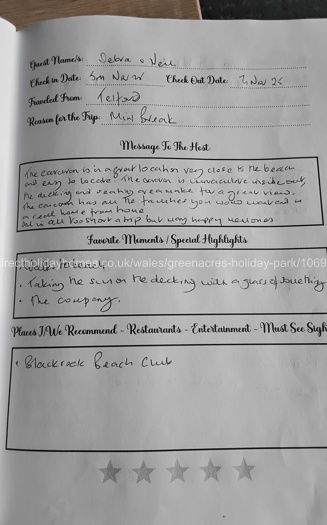 Guest Name/s: Debra & Neil
Check in Date: 3rd Nov 24 Check Out Date: 7 Nov 24
Traveled From: Telford
Reason for the Trip: Mini Break
Message To The Host
The caravan is in a great location very close to the beach
and easy to locate. The caravan is immaculate inside + out,
the decking and seating area make for a great view.
The caravan has all the facilities you would want in
a real home from home.
all in all too short a trip but very happy memories.
Favorite Moments / Special Highlights
directholidayhomes.co.uk/wales/greenacres-holiday-park/1069
· Taking the sun on the decking with a glass of something
· The company.
Places I/We Recommend - Restaurants - Entertainment - Must See Sigh
· Blackrock Beach Club